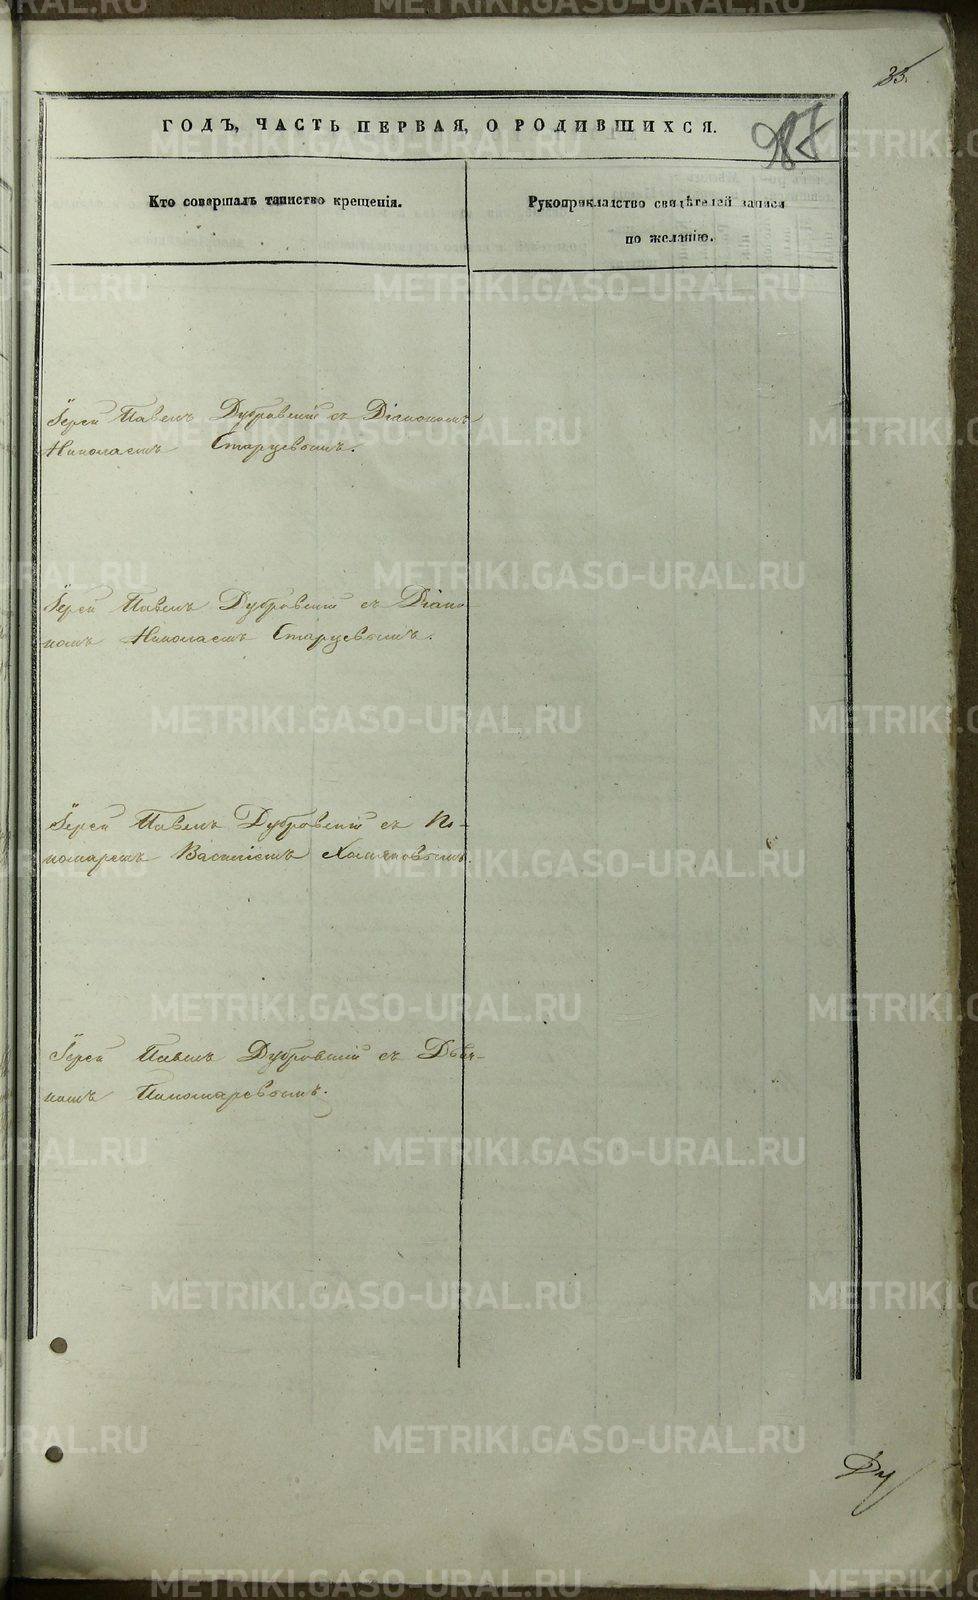 33.
ГОДЪ, ЧАСТЬ ПЕРВАЯ, О РОДИВШИХСЯ.
Кто совершалъ таинство крещенія.
Рукоприкладство свидѣтелей записи
по желанію.
Іерей Павелъ Дубровскій съ Діакономъ
Николаемъ Старцевымъ.
Іерей Павелъ Дубровскій съ Діако-
номъ Николаемъ Старцевымъ.
Іерей Павелъ Дубровскій съ По-
номаремъ Василіемъ
Іерей Павелъ Дубровскій съ Дьяч-
комъ Пономаревымъ.
Ду
METRIKI.GASO-URAL.RU